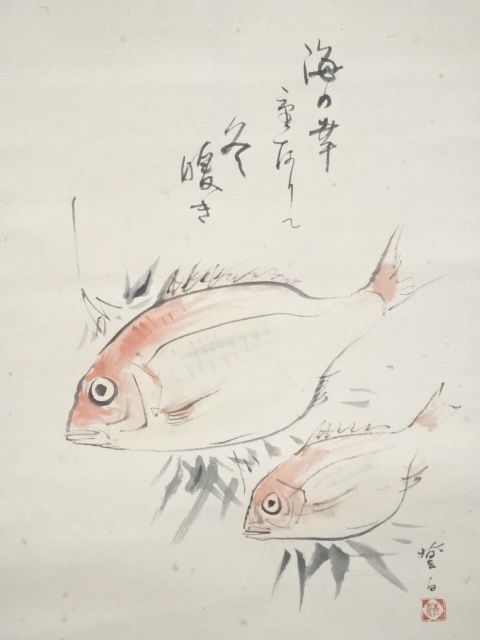 海の幸
重なりて
冬
暖き